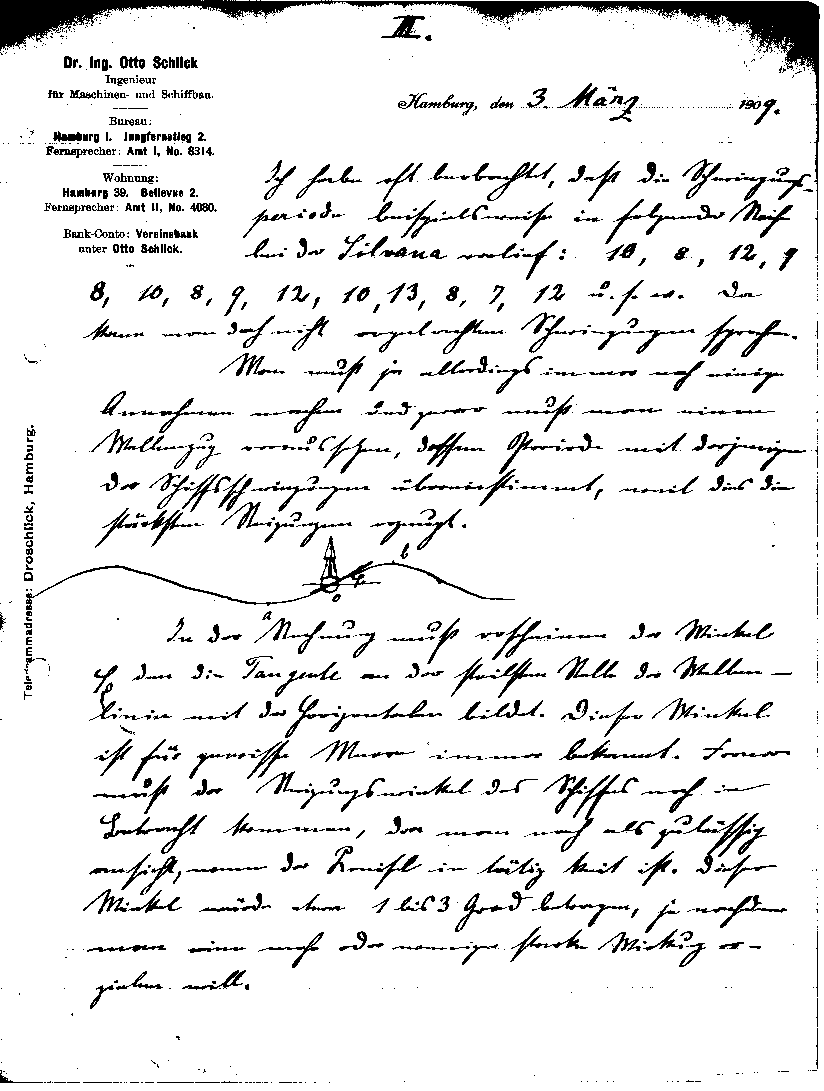 II.
Dr. Ing. Otto Schlick
Ingenieur
für Maschinen- und Schiffbau.
Bureau:
Hamburg I. Jungfernstieg 2.
Fernsprecher: Amt I, No. 8314.
Wohnung:
Hamburg 39. Bellevue 2.
Fernsprecher: Amt II, No. 4080.
Bank-Conto: Vereinsbank
unter Otto Schlick.
Hamburg, den 3. März 1909.
Ich habe oft beobachtet, daß die Schwingungs-
periode beispielsweise in folgender Reihe
bei der Silvana verlief: 10, 8, 12, 9
8, 10, 8, 9, 12, 10, 13, 8, 7, 12 u. s. w. Da
kann man doch nicht von Schwingungen sprechen.
Man muß ja allerdings immer noch einige
Annahmen machen und zwar muß man einen
Wellenzug voraussetzen, dessen Periode mit derjenigen
der Schiffsschwingungen übereinstimmt, weil dies die
stärksten Neigungen erzeugt.
a
o
φ
b
In der Rechnung muß erscheinen der Winkel
φ den die Tangente an der steilsten Stelle der Wellen-
linie mit der Horizontalen bildet. Dieser Winkel
ist für gewisse Meere immer bekannt. Ferner
muß der Neigungswinkel des Schiffes noch in
Betracht kommen, den man noch als zulässig
ansieht, wenn der Kreisel in Tätigkeit ist. Dieser
Winkel würde etwa 1 bis 3 Grad betragen, je nachdem
man eine mehr oder weniger starke Wirkung er-
zielen will.
Telegrammadresse: Droschlick, Hamburg.